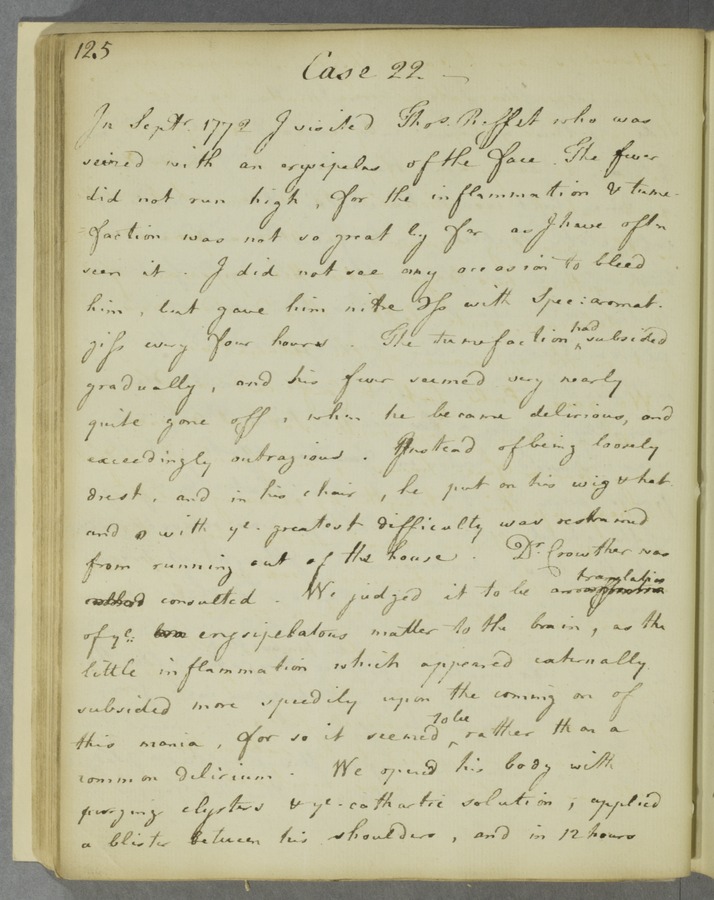 125
Case 22.
In Septr. 1772 I visited Thos. Reffet who was
seized with an erysipelas of the face. The fever
did not run high, for the inflammation & tume-
faction was not so great by far as I have often
seen it. I did not see any occasion to bleed
him, but gave him nitre ʒſs with Spec: aromat.
giſs every four hours. The tumefaction had subsided
gradually, and his fever seemed very nearly
quite gone off, when he became delirious, and
exceedingly outragious. Instead of being loosely
drest, and in his chair, he put on his wig & hat
and with ye. greatest difficulty was restrained
from running out of the house. Dr. Crowther was
consulted. We judged it to be a translation
of ye. erysipelatous matter to the brain, as the
little inflammation which appeared externally
subsided more speedily upon the coming on of
this mania, for so it seemed to be rather than a
common delirium. We opened his body with
purging clysters & ye. cathartic solution; applied
a blister between his shoulders, and in 12 hours